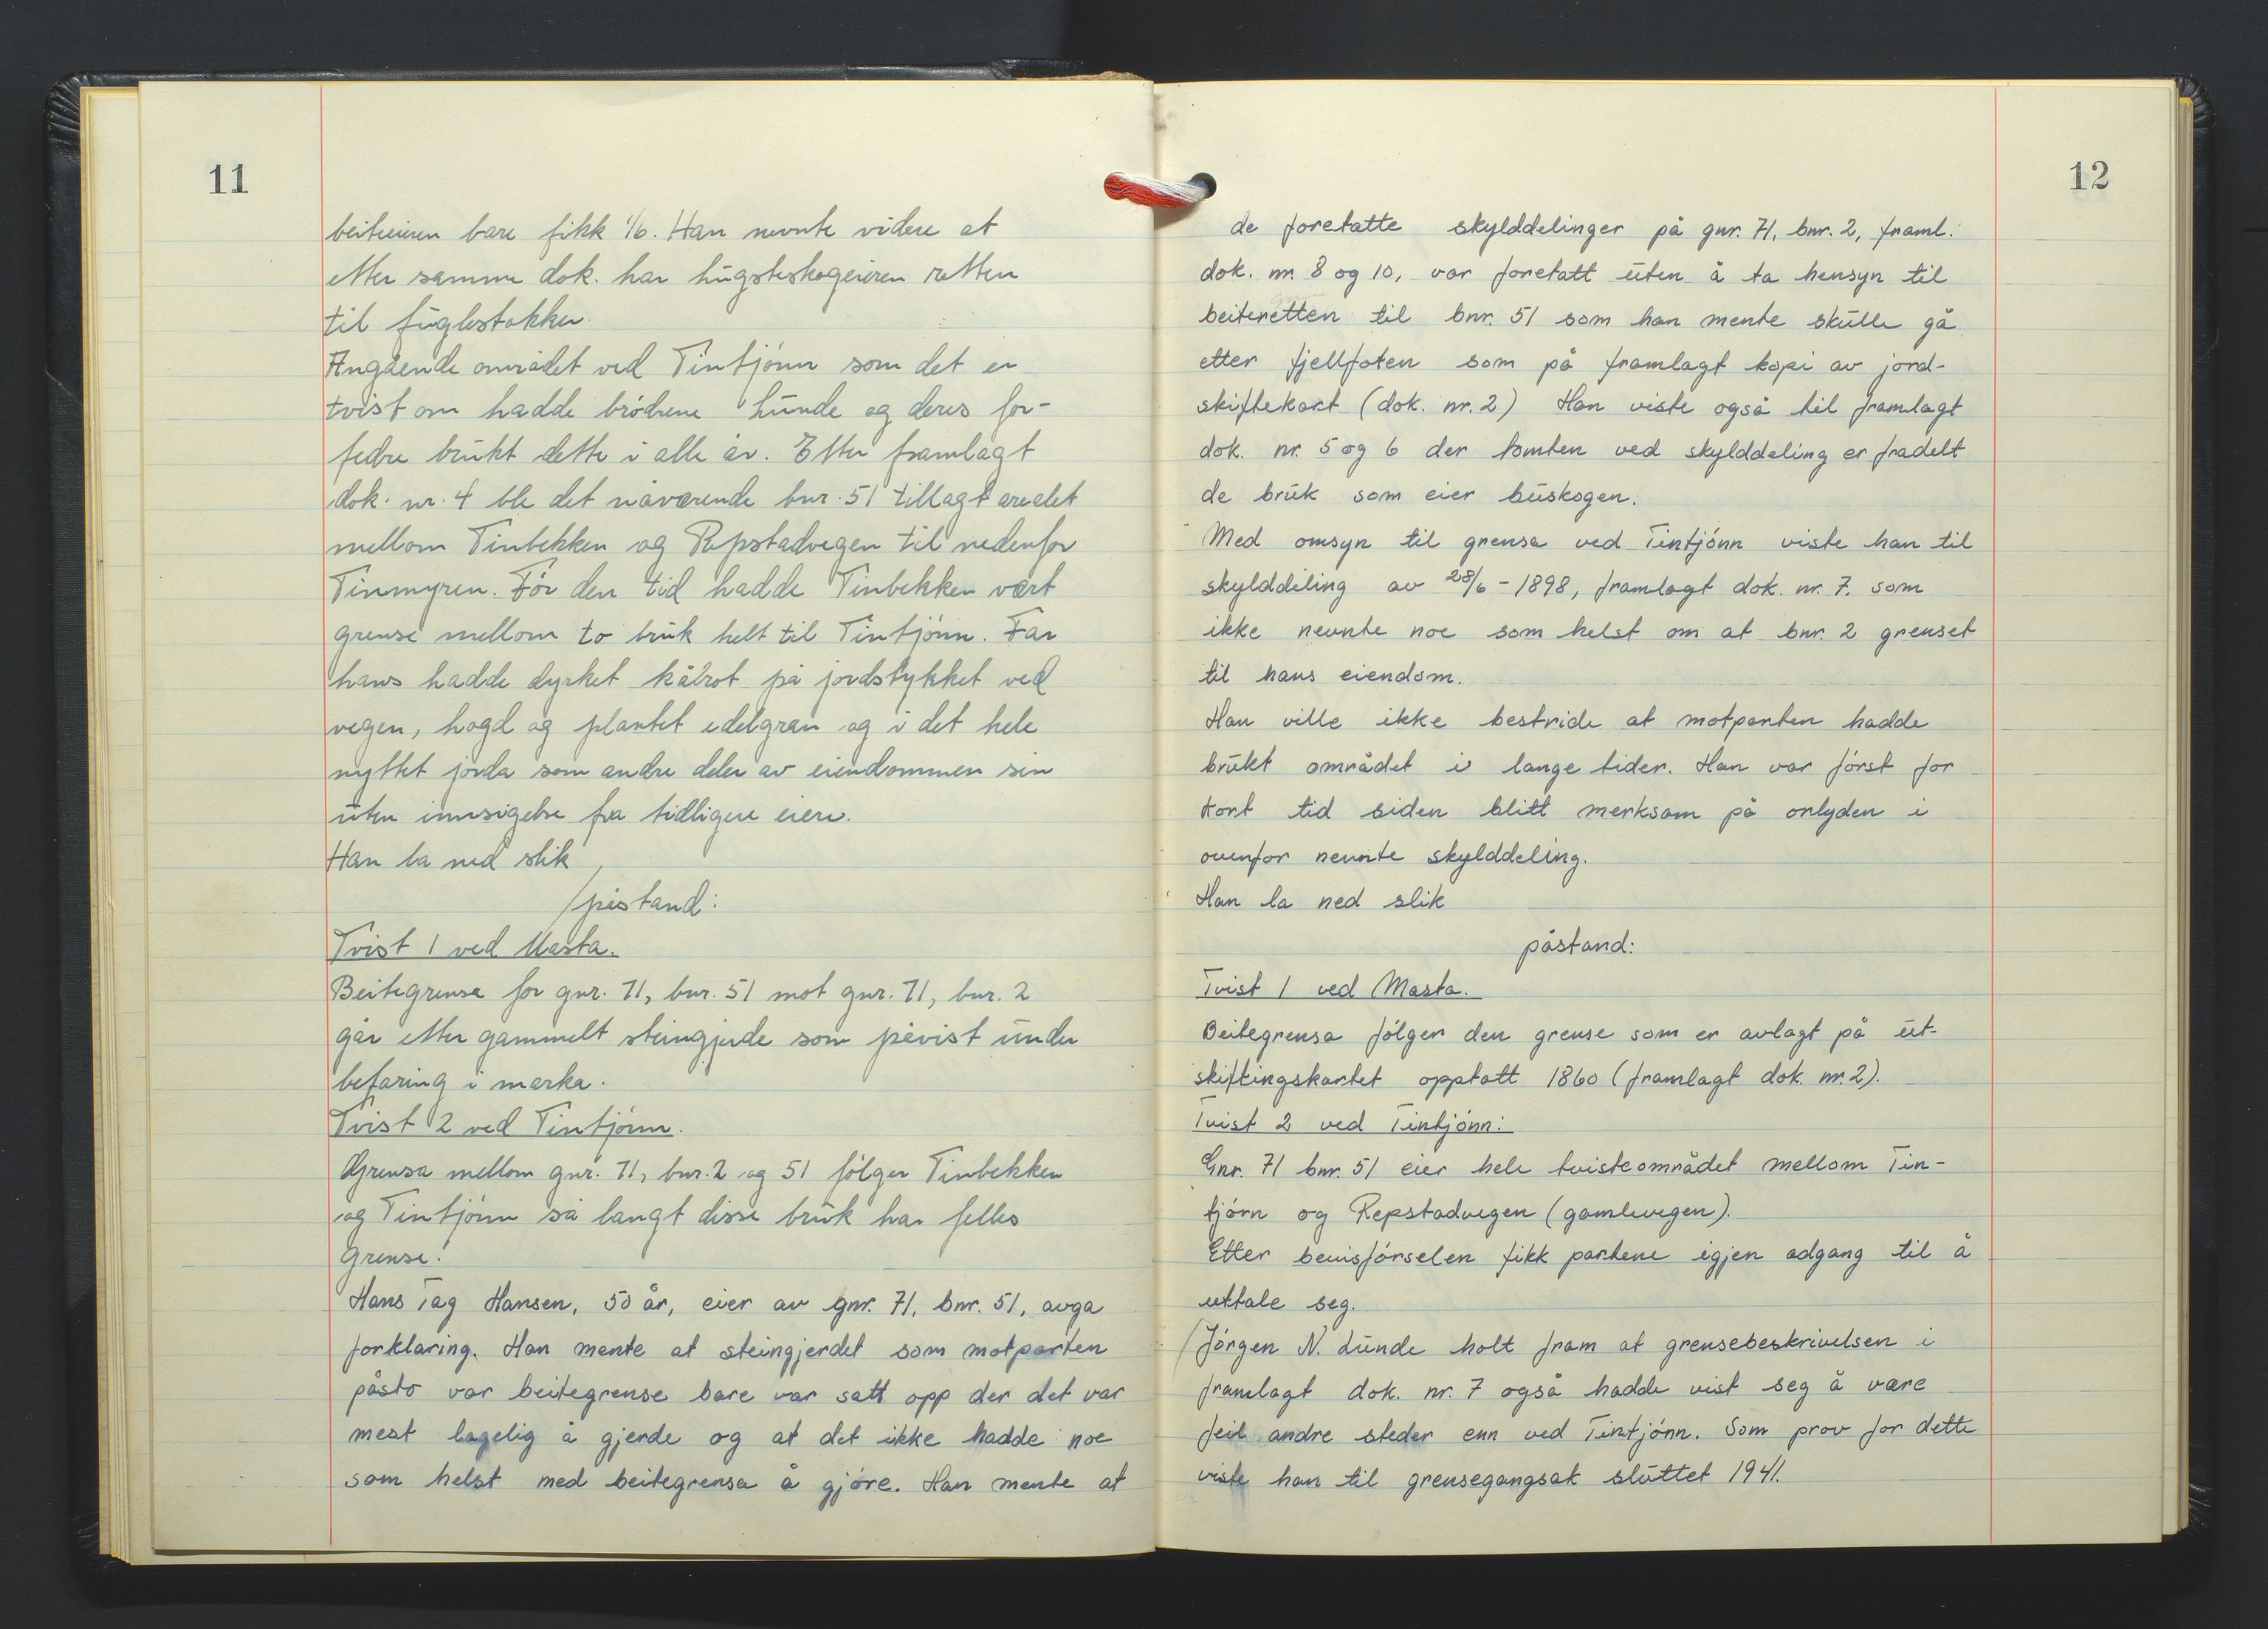 11
beiteeieren bare fikk 1/6. Han nevnte videre at
etter samme dok. har hugsteskogeieren retten
til fuglestokker.
Angående området ved Tintjónn som det er
tvist om hadde bródrene Lunde og deres for-
fedre brukt dette i alle år. Etter framlagt
dok. nr. 4 ble det nåværende bnr. 51 tillagt arealet
mellom Tinbekken og Repstadvegen til nedenfor
Tinmyren. Fór den tid hadde Tinbekken vært
grense mellom to bruk helt til Tintjónn. Far
hans hadde dyrket kålrot på jordstykket ved
vegen, hogd og plantet edelgran og i det hele
nyttet jorda som andre deler av eiendommen sin
uten innsigelse fra tidligere eiere.
Han la ned slik
påstand:
Tvist 1 ved Masta.
Beitegrensa for gnr. 71, bnr. 51 mot gnr. 71, bnr. 2
går etter gammelt steingjerde som påvist under
befaring i marka.
Tvist 2 ved Tintjónn.
Grensa mellom gnr. 71, bnr. 2 og 51 fólger Tinbekken
og Tintjónn så langt disse bruk har felles
grense.
Hans Tag Hansen, 50 år, eier av gnr. 71, bnr. 51, avga
forklaring. Han mente at steingjerdet som motparten
påsto var beitegrense bare var satt opp der det var
mest lagelig å gjerde og at det ikke hadde noe
som helst med beitegrensa å gjóre. Han mente at
12
de foretatte skylddelinger på gnr. 71, bnr. 2, framl.
dok. nr. 8 og 10, var foretatt uten å ta hensyn til
beiteretten til bnr. 51 som han mente skulle gå
etter fjellfoten som på framlagt kopi av jord-
skiftekart (dok. nr. 2) Han viste også til framlagt
dok. nr. 5 og 6 der tomten ved skylddeling er fradelt
de bruk som eier buskogen.
Med omsyn til grensa ved Tintjónn viste han til
skylddeling av 28/6 - 1898, framlagt dok. nr. 7. som
ikke nevnte noe som helst om at bnr. 2 grenset
til hans eiendom.
Han ville ikke bestride at motparten hadde
brukt området i lange tider. Han var fórst for
kort tid siden blitt merksam på orlyden i
ovenfor nevnte skylddeling.
Han la ned slik
påstand:
Tvist 1 ved Masta.
Beitegrensa fólger den grense som er avlagt på ut-
skiftingskartet opptatt 1860 (framlagt dok. nr. 2).
Tvist 2 ved Tintjónn:
Gnr. 71 bnr. 51 eier hele tvisteområdet mellom Tin-
tjórn og Repstadvegen (gamlevegen).
Etter bevisfórselen fikk partene igjen adgang til å
uttale seg.
Jórgen N. Lunde holt fram at grensebeskrivelsen i
framlagt dok. nr. 7 også hadde vist seg å være
feil andre steder enn ved Tintjónn. Som prov for dette
viste han til grensegangsak sluttet 1941.